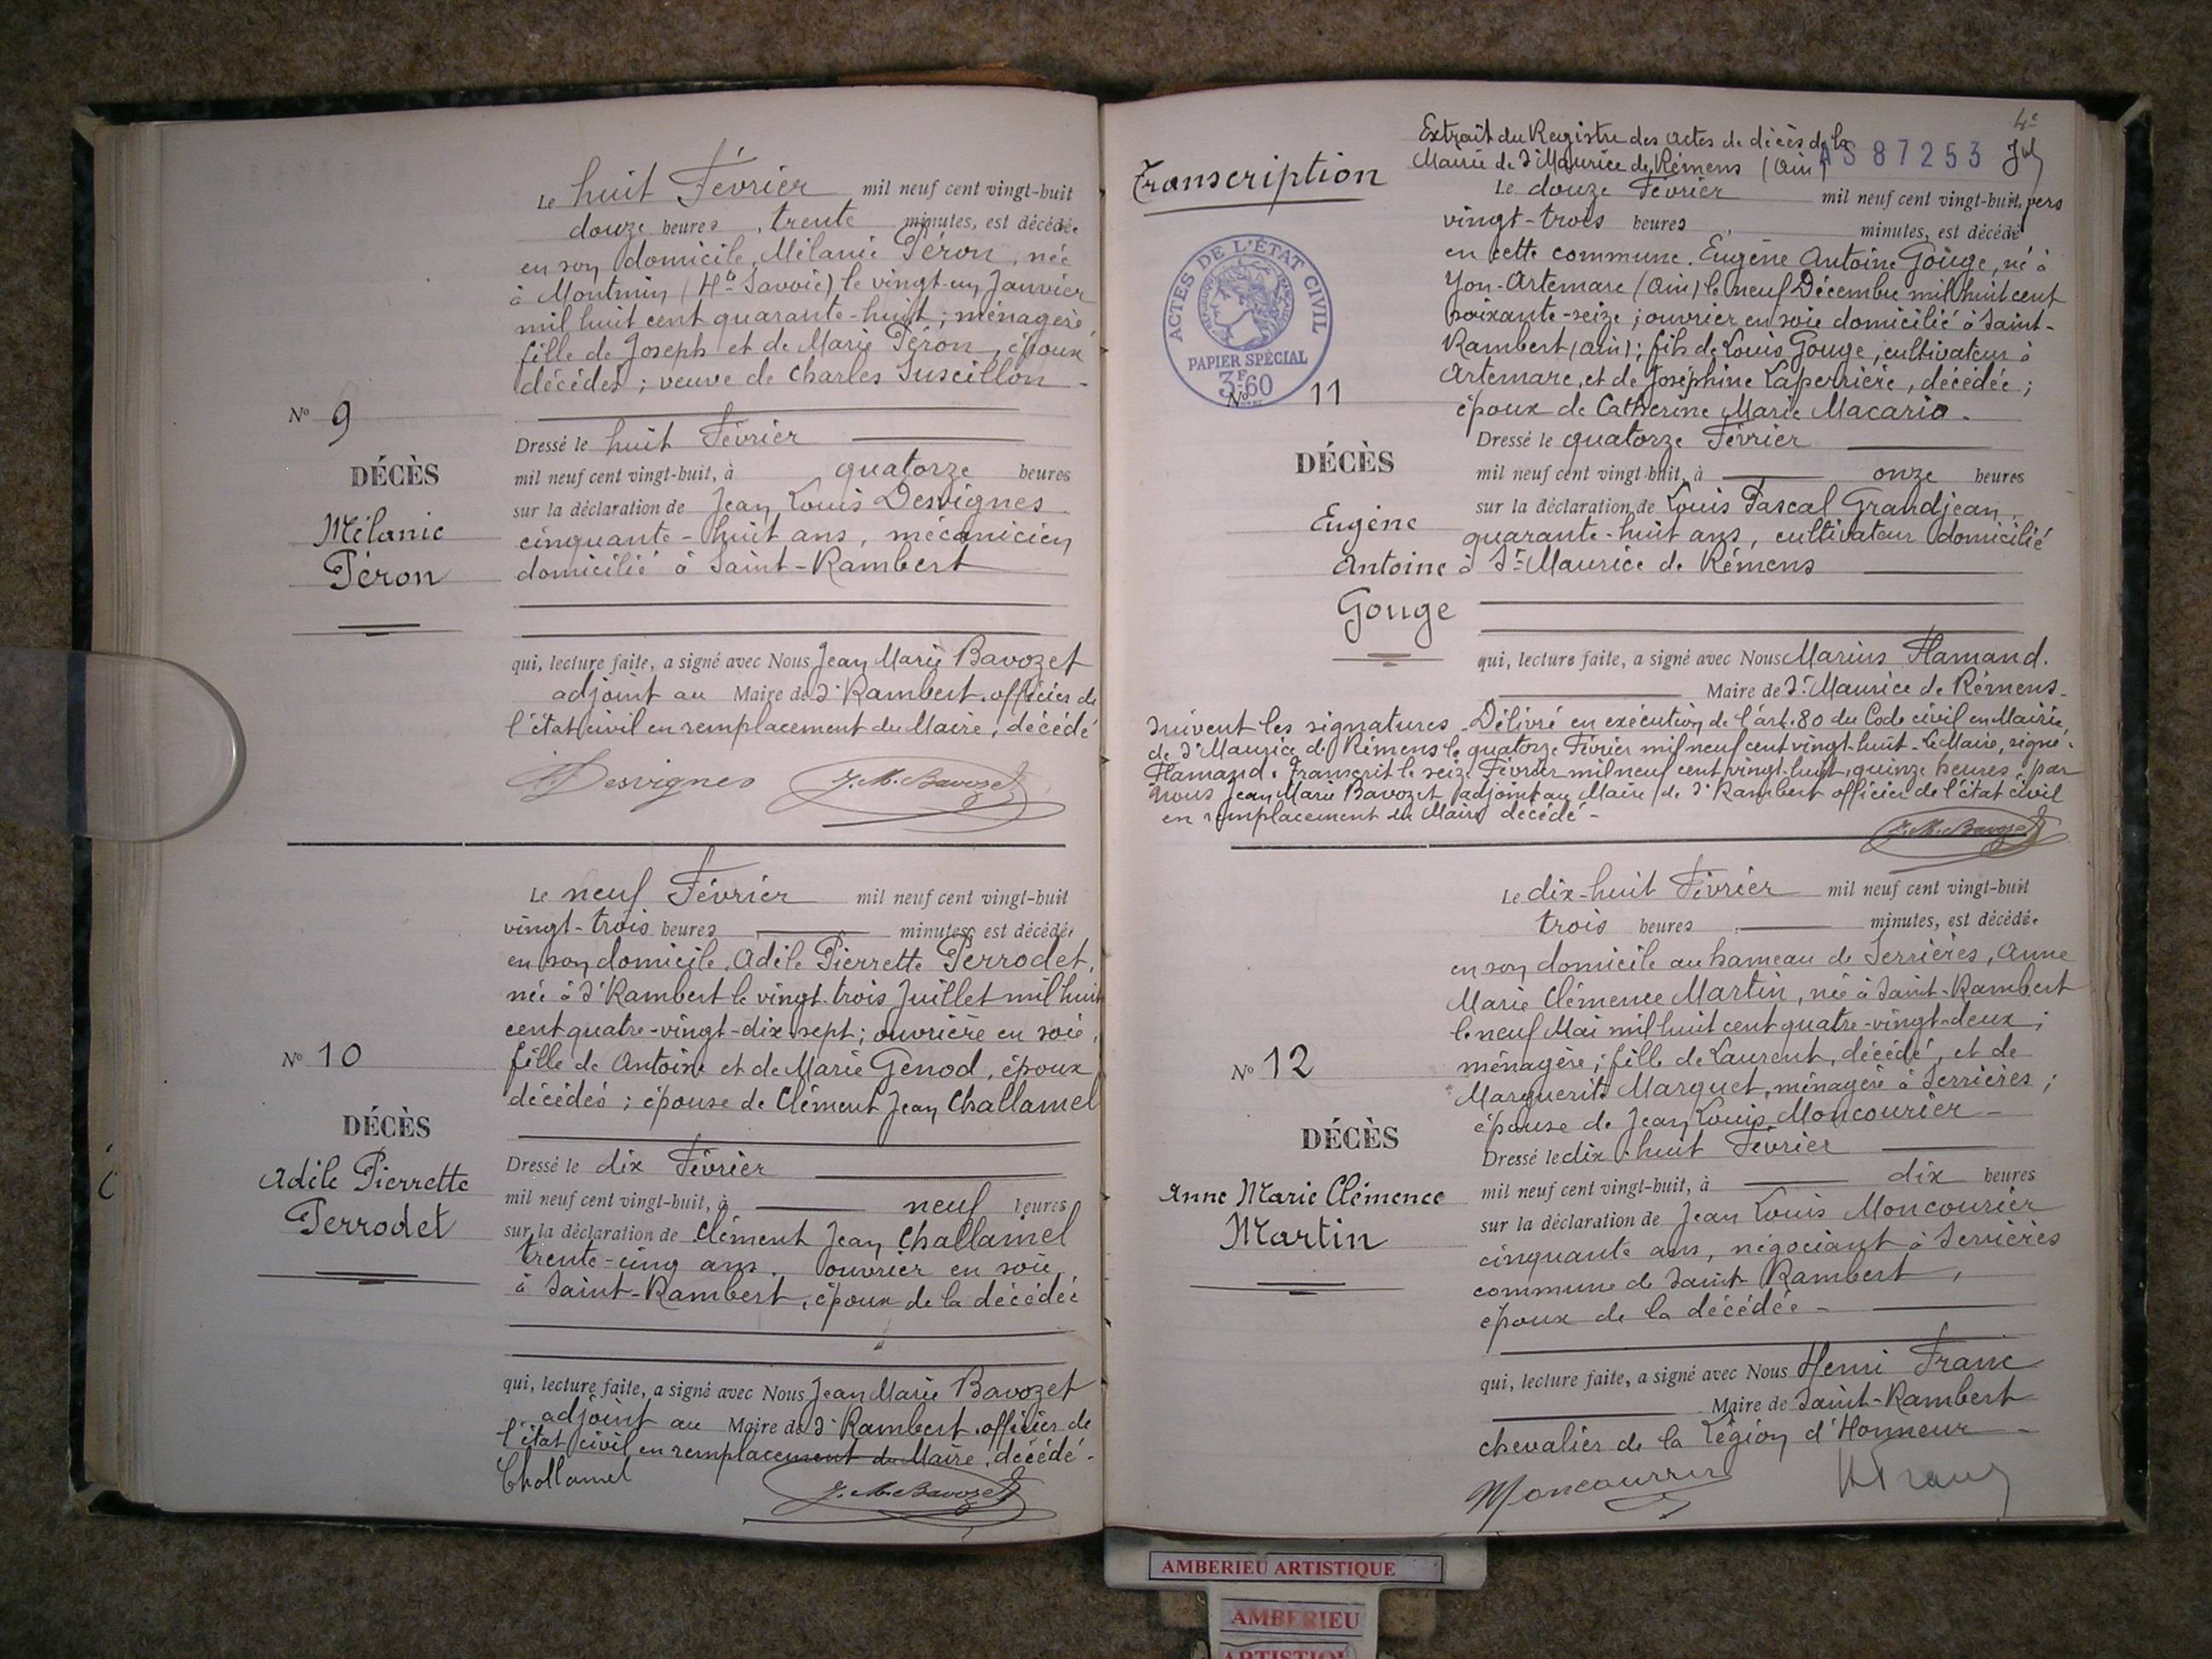 Le huit Février mil neuf cent vingt-huit
douze heures, trente minutes, est décédée
en son domicile, Mélanie Péron, née
à Montmin (Hte Savoie) le vingt-un Janvier
mil huit cent quarante-huit; ménagère,
fille de Joseph et de Marie Péron, époux
décédés; veuve de Charles Suscillon -
N° 9
DÉCÈS
Mélanie
Péron
Dressé le huit Février
mil neuf cent vingt-huit, à quatorze heures
sur la déclaration de Jean Louis Desvignes
cinquante-huit ans, mécanicien
domicilié à Saint-Rambert
qui, lecture faite, a signé avec Nous Jean Marie Bavozet
adjoint au Maire de St Rambert officier de
l'état civil en remplacement du Maire, décédé
Desvignes J. M. Bavozet
Le neuf Février mil neuf cent vingt-huit
vingt-trois heures minutes, est décédée
en son domicile, Adèle Pierrette Perrodet,
née à St Rambert le vingt-trois Juillet mil huit
cent quatre-vingt-dix-sept; ouvrière en soie,
fille de Antoine et de Marie Genod, époux
décédés; épouse de Clément Jean Challamel
N° 10
DÉCÈS
Adèle Pierrette
Perrodet
Dressé le dix Février
mil neuf cent vingt-huit, à neuf heures
sur la déclaration de Clément Jean Challamel
trente-cinq ans, ouvrier en soie
à Saint-Rambert, époux de la décédée
qui, lecture faite, a signé avec Nous Jean Marie Bavozet
adjoint au Maire de St Rambert officier de
l'état civil en remplacement du Maire, décédé -
Challamel J. M. Bavozet
4e
Transcription
Extrait du Registre des actes de décès de la
Mairie de St Maurice de Rémens (Ain)
AS 87253
Le douze Février mil neuf cent vingt-huit, vers
vingt-trois heures minutes, est décédé
en cette commune, Eugène Antoine Gouge, né à
Yon-Artemare (Ain) le neuf Décembre mil huit cent
soixante-seize; ouvrier en soie domicilié à Saint-
Rambert (Ain); fils de Louis Gouge, cultivateur à
Artemare, et de Joséphine Laperrière, décédée;
époux de Catherine Marie Macario -
ACTES DE L'ÉTAT CIVIL
PAPIER SPÉCIAL
3F.60
N° 11
DÉCÈS
Eugène
Antoine
Gouge
Dressé le quatorze Février
mil neuf cent vingt-huit, à onze heures
sur la déclaration de Louis Pascal Grandjean,
quarante-huit ans, cultivateur domicilié
à St Maurice de Rémens
qui, lecture faite, a signé avec Nous Marius Flamand.
Maire de St Maurice de Rémens -
Suivent les signatures - Délivré en exécution de l'art. 80 du Code civil en Mairie
de St Maurice de Rémens le quatorze Février mil neuf cent vingt-huit - Le Maire, signé:
Flamand. Transcrit le seize Février mil neuf cent vingt-huit, quinze heures, par
Nous Jean Marie Bavozet adjoint au Maire de St Rambert officier de l'état civil
en remplacement du Maire décédé -
J. M. Bavozet
Le dix-huit Février mil neuf cent vingt-huit
trois heures minutes, est décédée
en son domicile au hameau de Serrières, Anne
Marie Clémence Martin, née à Saint-Rambert
le neuf Mai mil huit cent quatre-vingt-deux;
ménagère; fille de Laurent, décédé, et de
Marguerite Marguet, ménagère à Serrières;
épouse de Jean Louis Moncourier -
N° 12
DÉCÈS
Anne Marie Clémence
Martin
Dressé le dix-huit Février
mil neuf cent vingt-huit, à dix heures
sur la déclaration de Jean Louis Moncourier
cinquante ans, négociant à Serrières
commune de Saint-Rambert,
époux de la décédée -
qui, lecture faite, a signé avec Nous Henri Franc
Maire de Saint-Rambert
chevalier de la Légion d'Honneur -
Moncourrier HFranc
AMBERIEU ARTISTIQUE
AMBERIEU
ARTISTIQUE